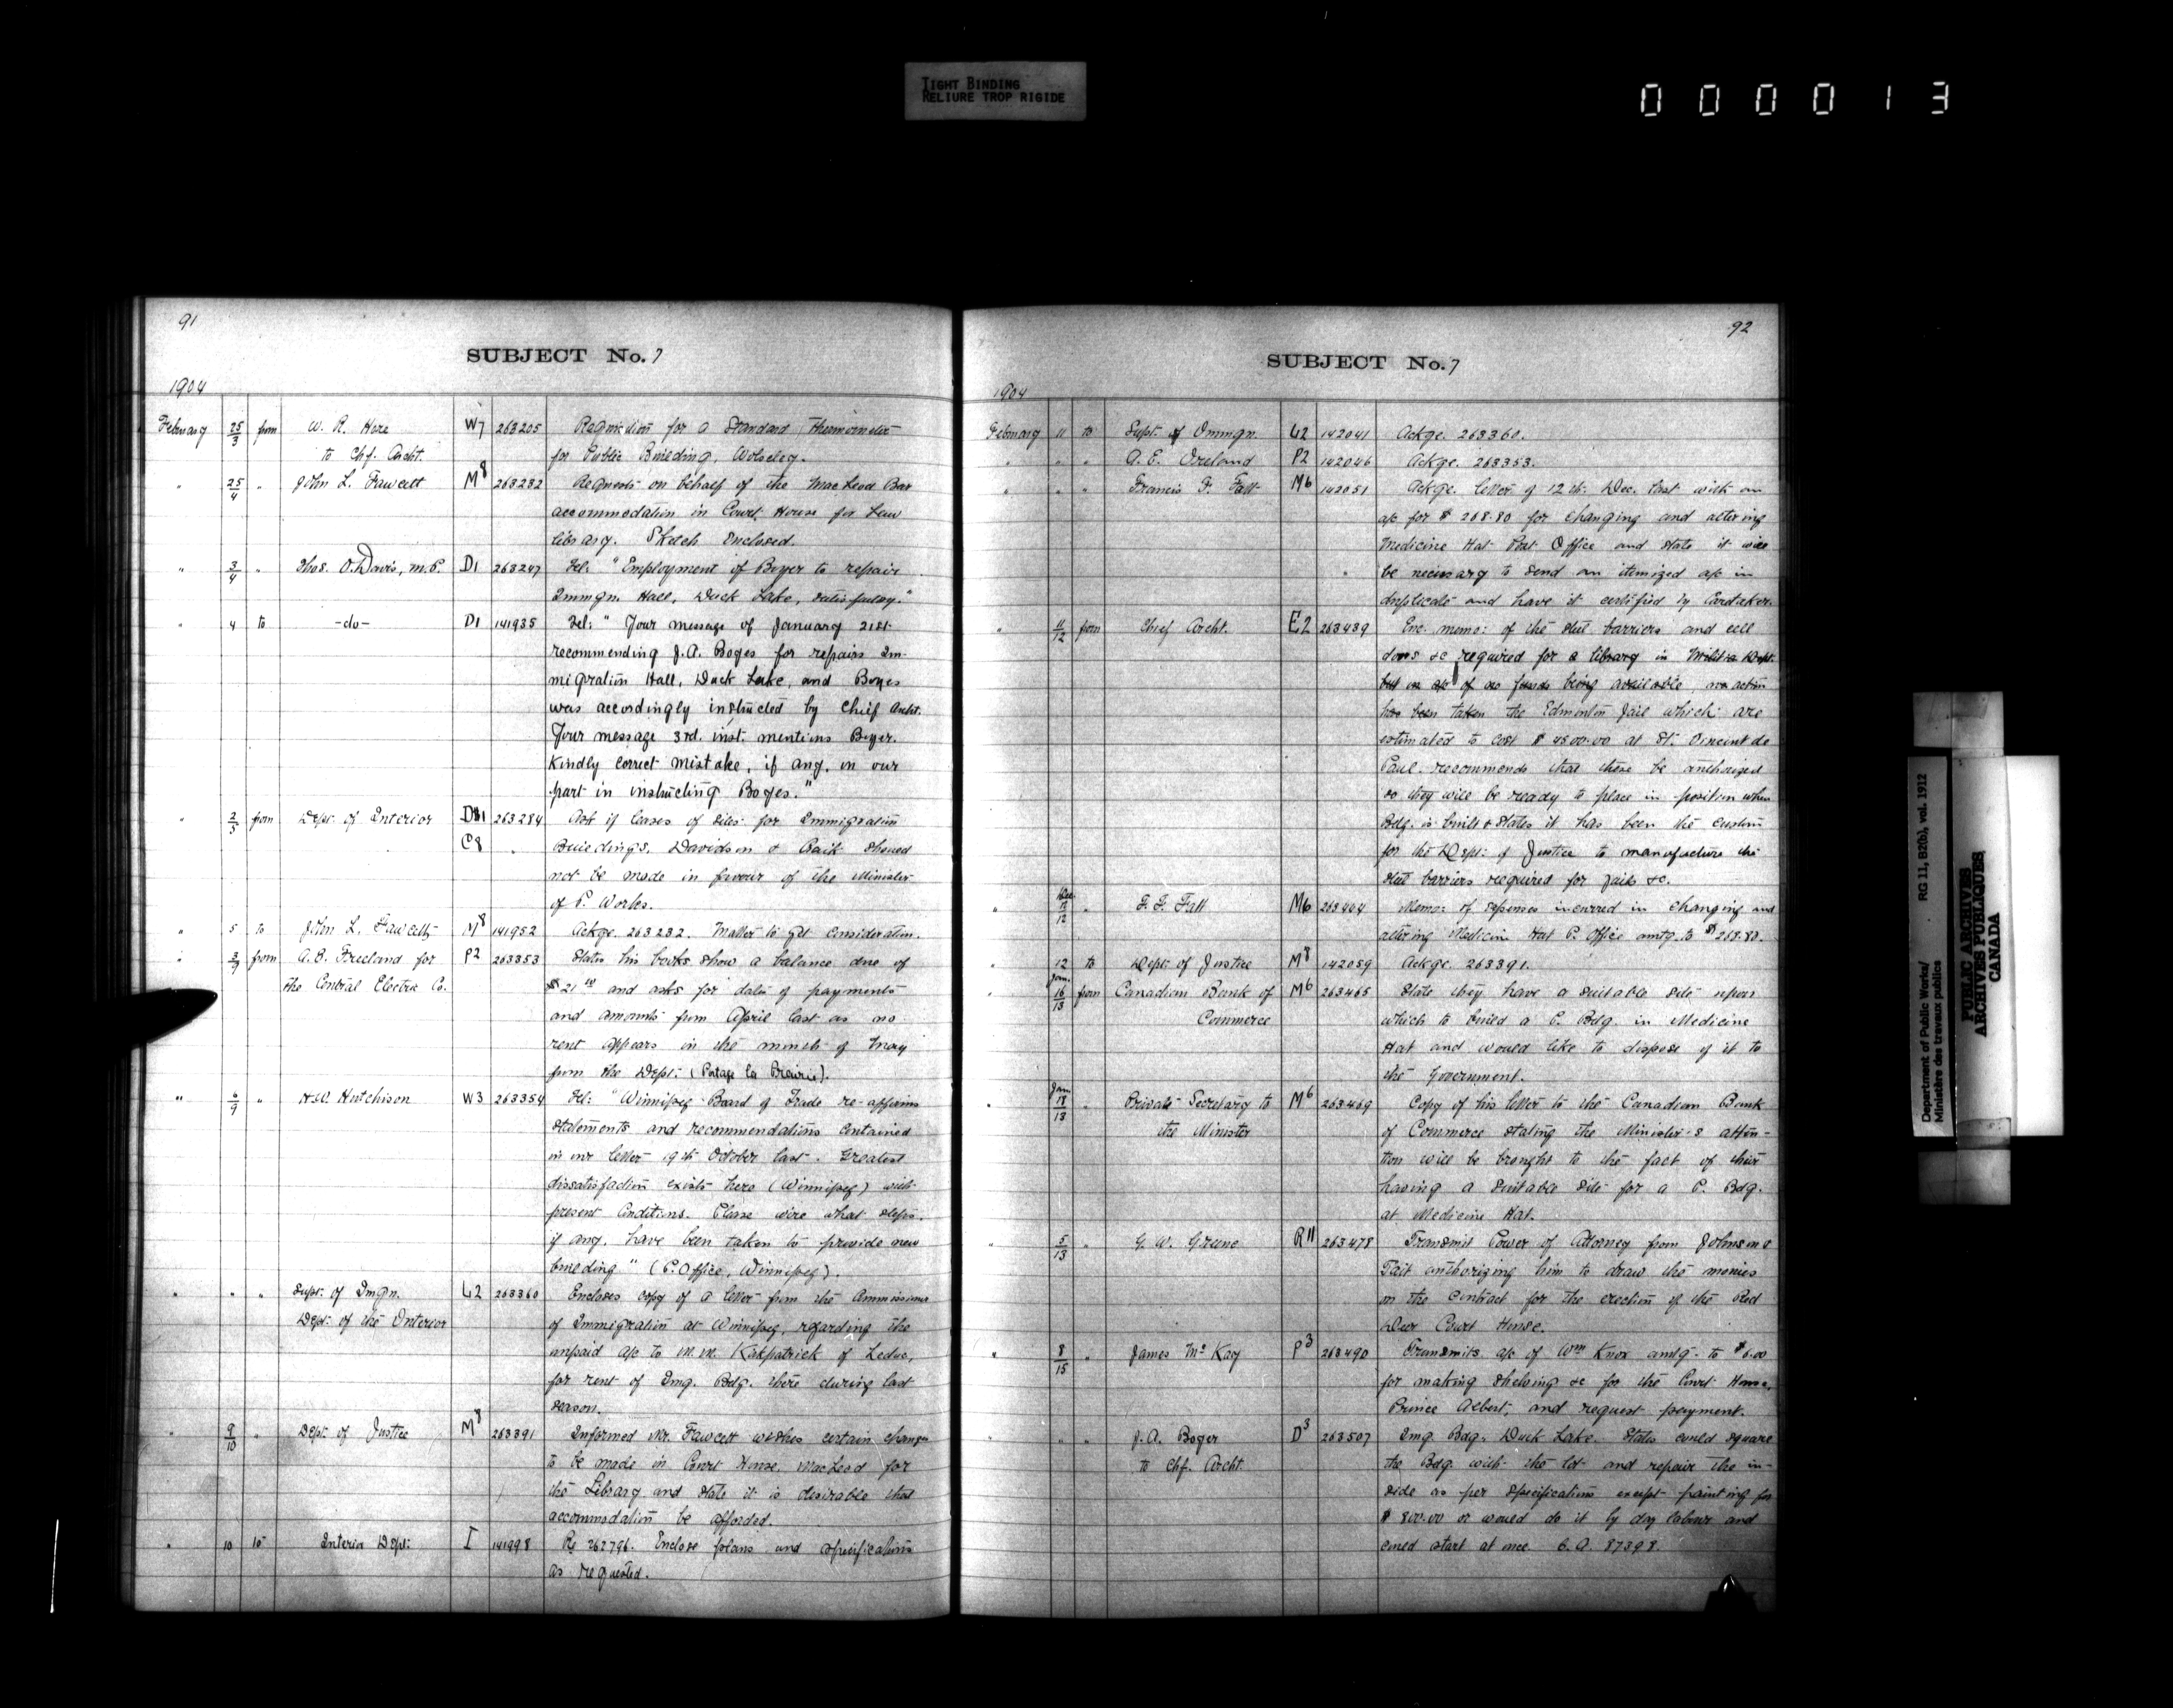 TIGHT BINDING
RELIURE TROP RIGIDE
000013
91
SUBJECT No. 7
1904
February 25/3 from W. R. Hore W7 263205 Requisition for a Standard Thermometer
to Chf. Archt. for Public Building, Wolseley.
" 25/4 " John L. Fawcett M8 263232 Requests on behalf of the MacLeod Bar
accommodation in Court House for Law
library. Sketch enclosed.
" 3/4 " Thos. O. Davis, M.P. D1 263247 Tel: "Employment of Boyer to repair
Immgn. Hall, Duck Lake, satisfactory."
" 4 to -do- D1 141935 Tel: "Your message of January 21st
recommending J.A. Boyes for repairs Im-
migration Hall, Duck Lake, and Boyes
was accordingly instructed by Chief Archt.
Your message 3rd. inst. mentions Boyer.
Kindly correct mistake, if any, in our
part in instructing Boyes."
" 2/5 from Dept. of Interior D11 263284 Ask if leases of sites for Immigration
C8 " Buildings, Davidson & Craik should
not be made in favour of the Minister
of P. Works.
" 5 to John L. Fawcett M8 141952 Ackge. 263232. Matter to get consideration.
" 3/9 from A. E. Freeland for P2 263353 States his books show a balance due of
the Central Electric Co. $21 and asks for dates of payments
and amounts from April last as no
rent appears in the month of May
from the Dept: (Portage la Prairie).
" 6/9 " H.W. Hutchison W3 263354 Tel: "Winnipeg Board of Trade re-affirms
statements and recommendations contained
in our letter 19th October last. Greatest
dissatisfaction exists here (Winnipeg) with
present conditions. Please wire what steps,
if any, have been taken to provide new
building" (P. Office, Winnipeg).
" " " Supt. of Imgn. L2 263360 Encloses copy of a letter from the Commissioner
Dept. of the Interior of Immigration at Winnipeg, regarding the
unpaid a/c to M.M. Kirkpatrick of Leduc,
for rent of Img. Bdg. there during last
season.
" 9/10 " Dept. of Justice M8 263391 Informed Mr. Fawcett wishes certain changes
to be made in Court House, MacLeod for
the Library and state it is desirable that
accommodation be afforded.
" 10 to Interior Dept: I 141998 Re 262796. Enclose plans and specifications
as requested.
92
SUBJECT No. 7
1904
February 11 to Supt. of Immgn. L2 142041 Ackge. 263360.
" " " A. E. Ireland P2 142046 Ackge. 263353.
" " " Francis F. Fatt M6 142051 Ackge. letter of 12th. Dec. last with an
a/c for $268.80 for changing and altering
Medicine Hat Post Office and state it will
be necessary to send an itemized a/c in
duplicate and have it certified by Caretaker.
" 11/12 from Chief Archt. E2 263439 Enc. memo: of the steel barriers and cell
doors &c required for a library in Militia Dept.
but on a/c of no funds being available, no action
has been taken the Edmonton Jail which are
estimated to cost $4500.00 at St. Vincent de
Paul. recommends that these be authorized
so they will be ready to place in position when
Bdg. is built & states it has been the custom
for the Dept: of Justice to manufacture the
steel barriers required for jails &c.
" Dec. 12/12 " F. F. Fatt M6 263444 Memo: of expenses incurred in changing and
altering Medicine Hat P. Office amtg. to $268.80.
" 12 to Dept. of Justice M8 142059 Ackge. 263391.
" Jan. 16/13 from Canadian Bank of M6 263465 State they have a suitable site upon
Commerce which to build a P. Bdg. in Medicine
Hat and would like to dispose of it to
the Government.
" Jan. 18/13 " Private Secretary to M6 263469 Copy of his letter to the Canadian Bank
the Minister of Commerce stating the Minister's atten-
tion will be brought to the fact of their
having a suitable site for a P. Bdg.
at Medicine Hat.
" 5/13 " G. W. Greene R11 263478 Transmit Power of Attorney from Johnson &
Tait authorizing him to draw the monies
on the contract for the erection of the Red
Deer Court House.
" 8/15 " James McKay P3 263490 Transmits a/c of Wm Knox amtg. to $6.00
for making shelving &c for the Court House,
Prince Albert, and request payment.
" " " J.A. Boyer D3 263507 Img Bdg. Duck Lake. States could square
to Chf. Archt. the Bdg. with the lot and repair the in-
side as per specifications except painting for
$800.00 or would do it by day labour and
could start at once. C.A. 87398.
Department of Public Works/ RG 11, B2(b), vol. 1912
Ministère des travaux publics
PUBLIC ARCHIVES
ARCHIVES PUBLIQUES
CANADA